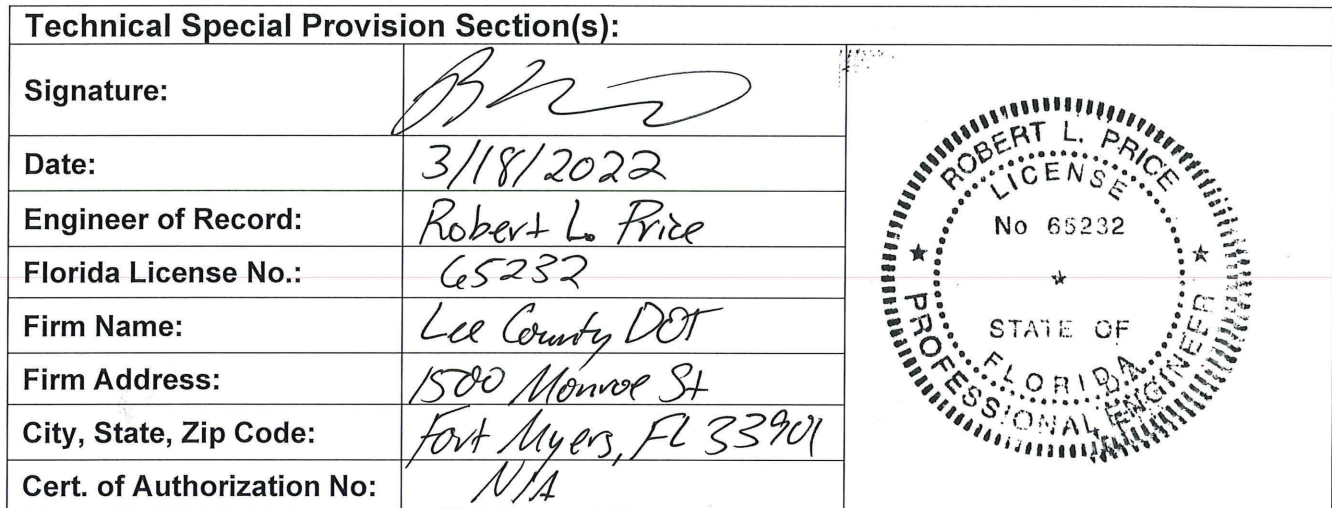 Technical Special Provision Section(s):
Signature:
Date: 3/18/2022
Engineer of Record: Robert L. Price
Florida License No.: 65232
Firm Name: Lee County DOT
Firm Address: 1500 Monroe St
City, State, Zip Code: Fort Myers, FL 33901
Cert. of Authorization No: N/A
ROBERT L. PRICE
LICENSE
No 65232
STATE OF
FLORIDA
PROFESSIONAL ENGINEER